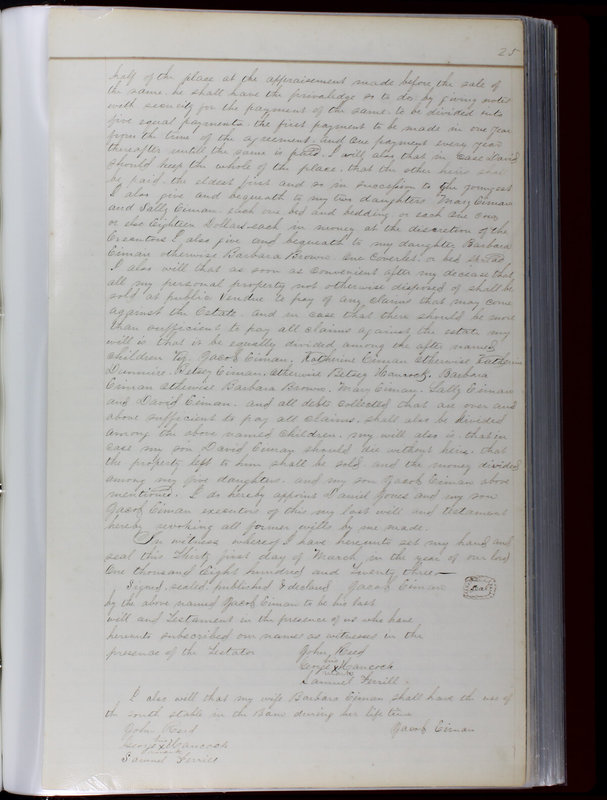 25
half of the place at the appraisement made before the sale of
the same. he shall have the privaledge so to do. by giving notes
with security for the payment of the same. to be divided into
five equal payments. the first payment to be made in one year
from the time of the agreement. and One payment every year
thereafter untill the same is paid. I will also that in case David
should keep the whole of the place. that the other heirs shall
be paid. the eldest first and so in succession to the youngest
I also give and bequeath to my two daughters Mary Eiman
and Sally Eiman. each one bed and bedding. or each One Cow
or else Eighteen Dollars each in money at the discretion of the
Executors I also give and bequeath to my daughter Barbara
Eiman otherwise Barbara Brown One Coverlet. or bed
I also will that as soon as convenient after my decease that
all my personal property not otherwise disposed of shall be
sold at public Vendue to pay of any claims that may come
against the Estate. and in case that there should be more
than sufficient to pay all claims against the estate my
will is that it be equally divided among the after named
children Viz. Jacob Eiman. Katherine Eiman Otherwise Katherine
Dunmire. Betsey Eiman. Otherwise Betsey Hancock. Barbara
Eiman otherwise Barbara Brown. Mary Eiman. Sally Eiman
and David Eiman. and all debts Collected that are over and
above sufficient to pay all Claims. shall also be divided
among the above named Children. my will also is. that in
case my son David Eiman should die without heirs. that
the property left to him shall be sold and the money divided
among my five daughters. and my son Jacob Eiman above
mentioned. I do hereby appoint Daniel Jones and my son
Jacob Eiman executors of this my last will and testament
hereby revoking all former wills by me made.
In witness whereof I have hereunto set my hand and
seal this Thirty first day of March in the year of our lord
One thousand Eight hundred and Twenty three
Signed. sealed. published & declared Jacob Eiman Seal
by the above named Jacob Eiman to be his last
will and Testament in the presence of us who have
hereunto subscribed our names as witnesses in the
presence of the Testator John Reed
his
George X Hancock
mark
Samuel Ferrill.
I also will that my wife Barbara Eiman shall have the use of
the south stable in the Barn during her life time
John Reed Jacob Eiman
his
George X Hancock
mark
Samuel Ferrill